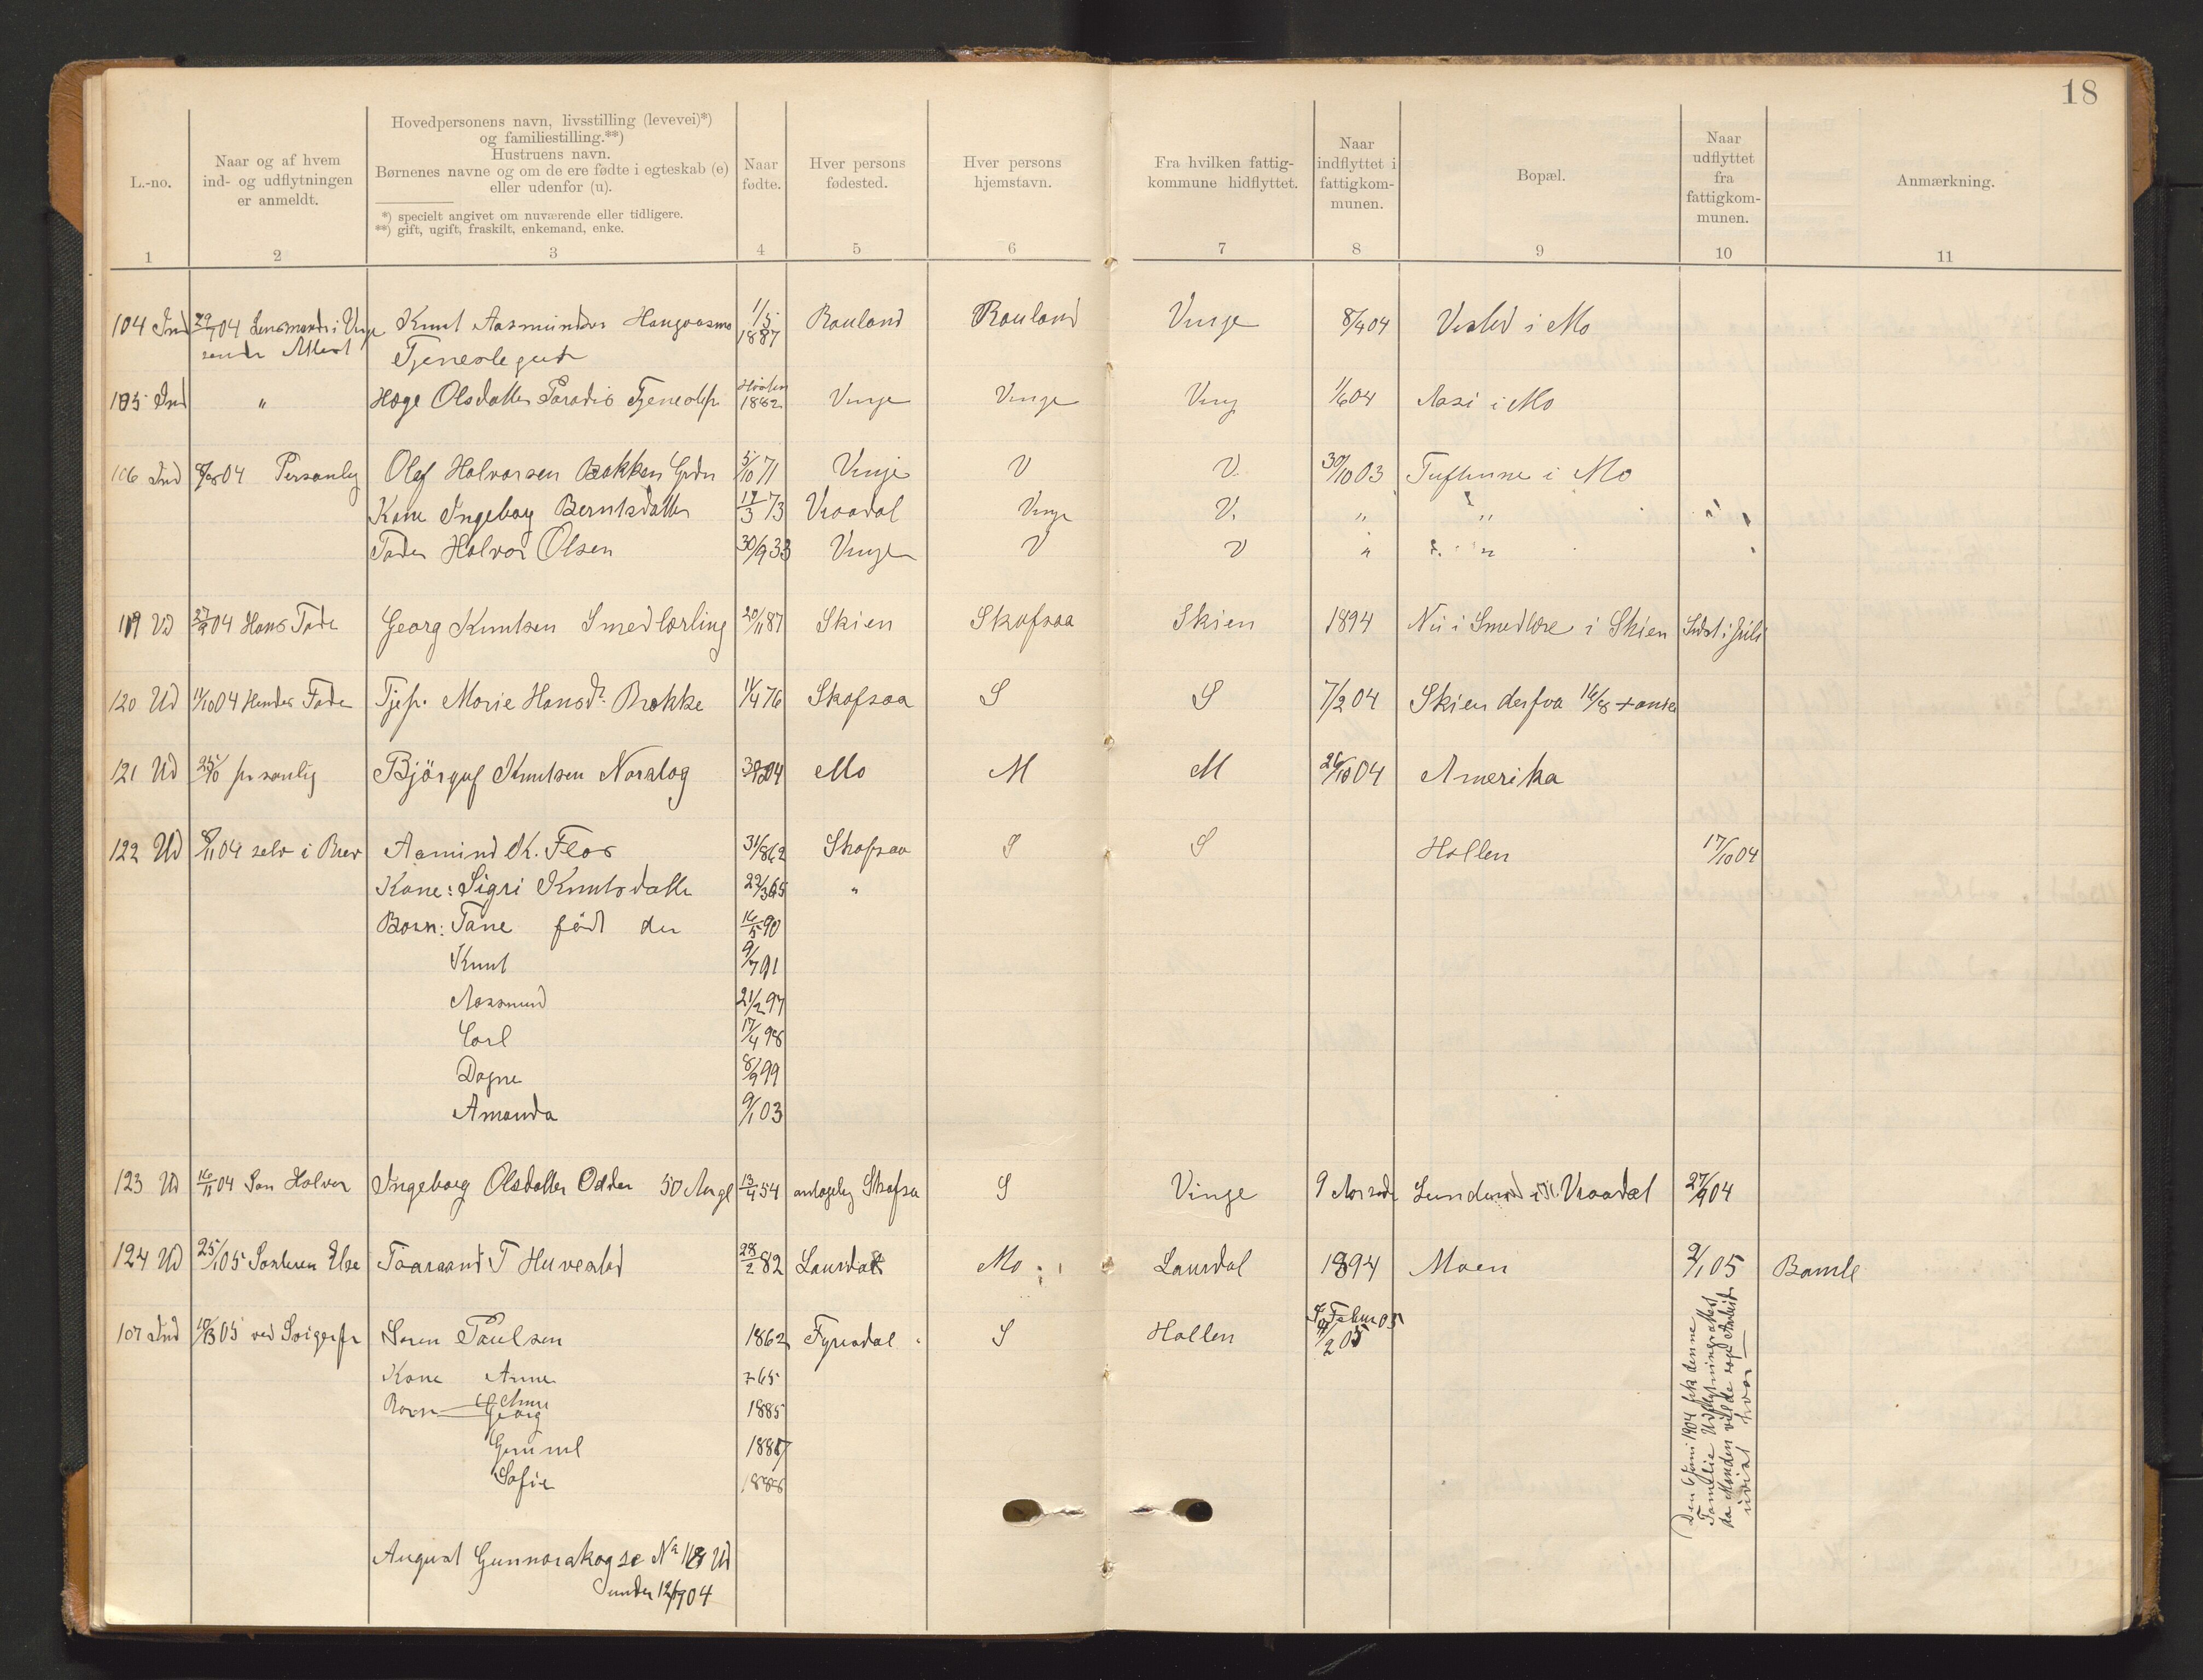 18
L.-no.
Naar og af hvem
ind- og udflytningen
er anmeldt.
Hovedpersonens navn, livsstilling (levevei)*)
og familiestilling.**)
Hustruens navn.
Børnenes navne og om de ere fødte i egteskab (e)
eller udenfor (u).
*) specielt angivet om nuværende eller tidligere.
**) gift, ugift, fraskilt, enkemand, enke.
Naar
fødte.
Hver persons
fødested.
Hver persons
hjemstavn.
Fra hvilken fattig-
kommune hidflyttet.
Naar
indflyttet i
fattigkom-
munen.
Bopæl.
Naar
udflyttet
fra
fattigkom-
munen.
Anmærkning.
1 2 3 4 5 6 7 8 9 10 11
104 Ind 04 Lensmand i Vinje Knut Aasmundsen 1/5 Rauland Rauland Vinje 8/4 04 i Mo
Attest Tjenestegut 1887
105 Ind " Hæge Olsdatter Paradis 1862 Vinje Vinje Vinj 1/6 04 Aasi i Mo
106 Ind 04 Personlig Olef Halvorsen Bakken 5/10 71 Vinje V V. 30/10 03 i Mo
Kone Ingeborg Berntsdatter 3 73 Vraadal Vinje V. " "
Fader Halvor Olsen 30/9 33 Vinje V V " "
119 Ud 27/9 04 Hans Fader Georg Knutsen Smedlærling 20/11 87 Skien Skafsaa Skien 1894 Nu i Smedlære i Skien Sidst i Juli
120 Ud 11/10 04 Hendes Fader Tjep. Marie Hansd. Brokke 11/4 76 Skafsaa S S 7/2 04 Skien derfra 16/8
121 Ud 25/10 personlig Bjørguf Knutsen Norslog 04 Mo M M 26/10 04 Amerika
122 Ud 8/11 04 selv i Brev Aamund K. Flor 31/8 62 Skafsaa S S Hollen 17/10 04
Kone: Sigri Knutsdatter 22/3 65 "
Børn: Tane født den 16/5 90
Knut 9/7 91
Aasmund 21/2 97
Carl 17/4 98
Dagne 8/9 99
Amanda 9/1 03
123 Ud 16/11 04 Søn Halvor Ingeborg Olsdatter Odden 50 Aar gl 13/4 54 antagelig Skafsa S Vinje 9 Aar siden Vraadal 27/9 04
124 Ud 25/1 05 Søsteren Else Taaraand T Huvestad 28/2 82 Laurdal Mo Laurdal 1894 Moen 2/1 05 Bamle
107 Ind 10/3 05 ved Sviger Søren Paulsen 1862 Fyrisdal S Hollen 2 05
Kone Anne 65
Børn Georg 1885
1887
Sofie 1888
Den 6 Juni 1904 fik denne
Familie Udflytningsattest
da Manden vilde søge Arbeide
uvist hvor
August Gunnarskog se No 118 Ud
under 12/9 04